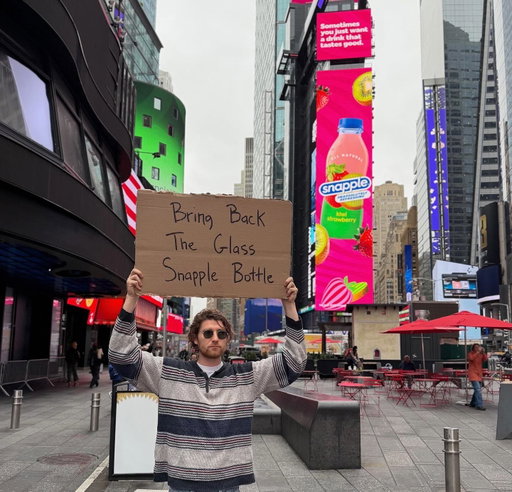 Sometimes
you just want
a drink that
tastes good.
ALL NATURAL
snapple
kiwi
strawberry
Bring Back
The Glass
Snapple Bottle